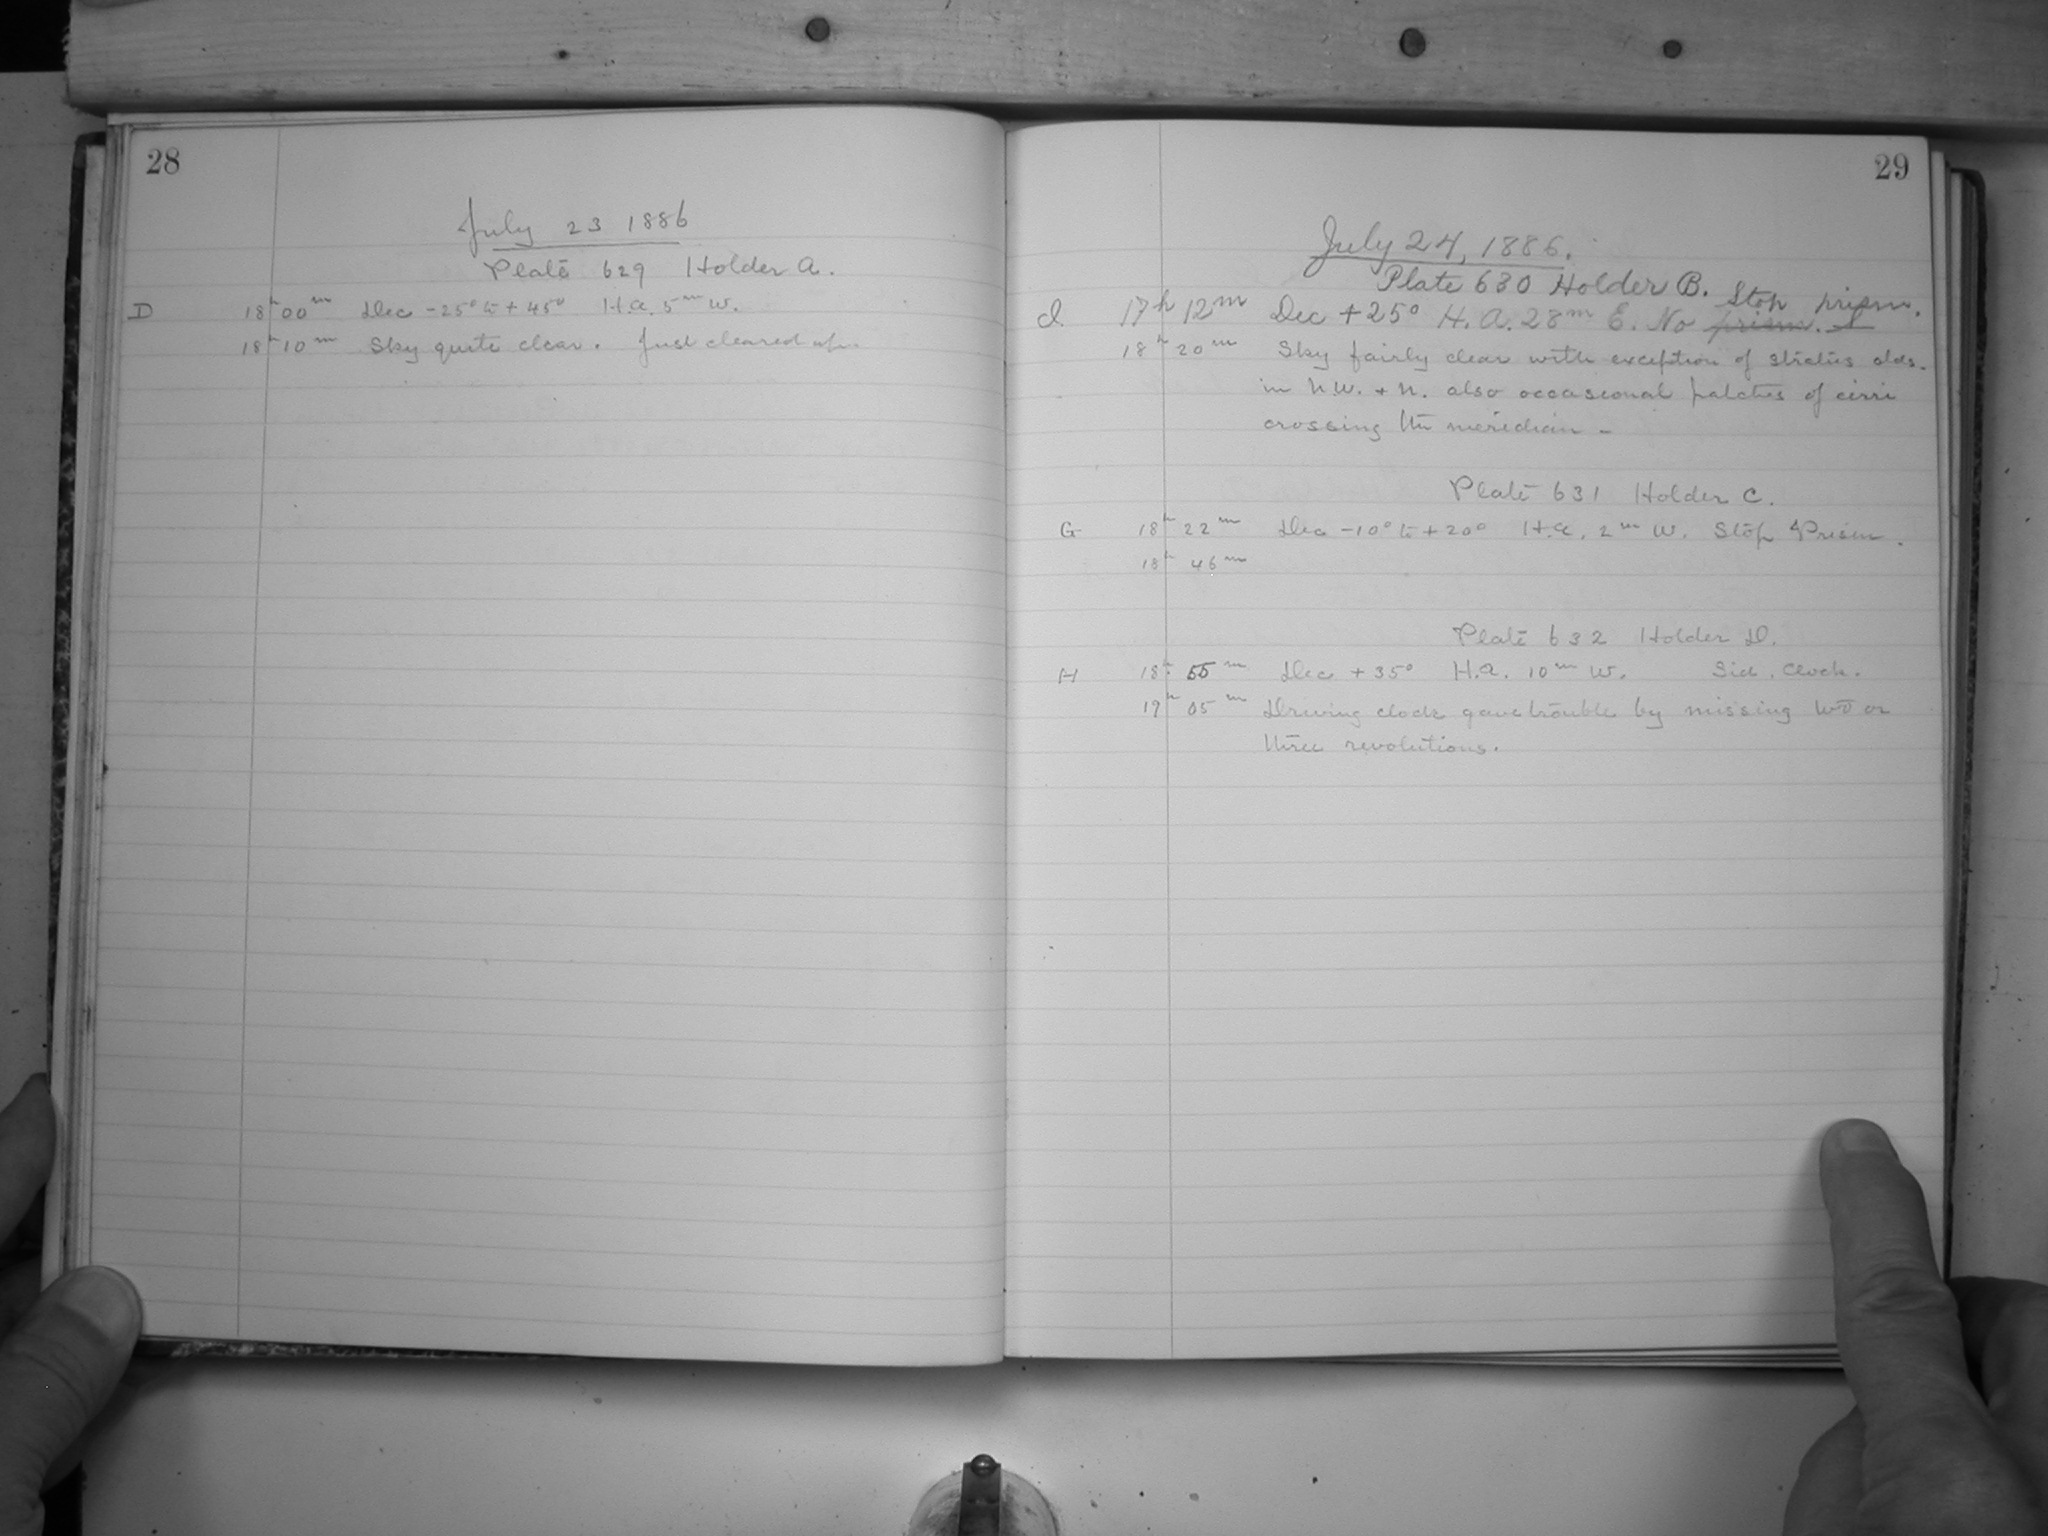 28
July 23 1886
Plate 629 Holder A.
D 18h 00m Dec -25° to +45° H.A. 5m W.
18h 10m Sky quite clear. Just cleared up.
29
July 24, 1886.
Plate 630 Holder B.
Stop prism.
17h 12m Dec +25° H.A. 28m E. No prism.
18h 20m Sky fairly clear with exception of stratus clds.
in N.W. + N. also occasional patches of cirri
crossing the meridian -
Plate 631 Holder C.
G 18h 22m Dec -10° to +20° H.A. 2m W. Stop & Prism.
18h 46m
Plate 632 Holder D.
H 18h 55m Dec +35° H.A. 10m W. Sid. Clock.
19h 05m Driving clock gave trouble by missing two or
three revolutions.